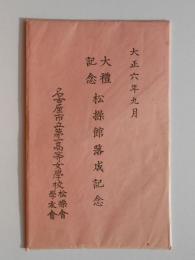 大正六年九月
大禮記念 松操館落成記念
名古屋市立第一高等女學校 松操會 學友會